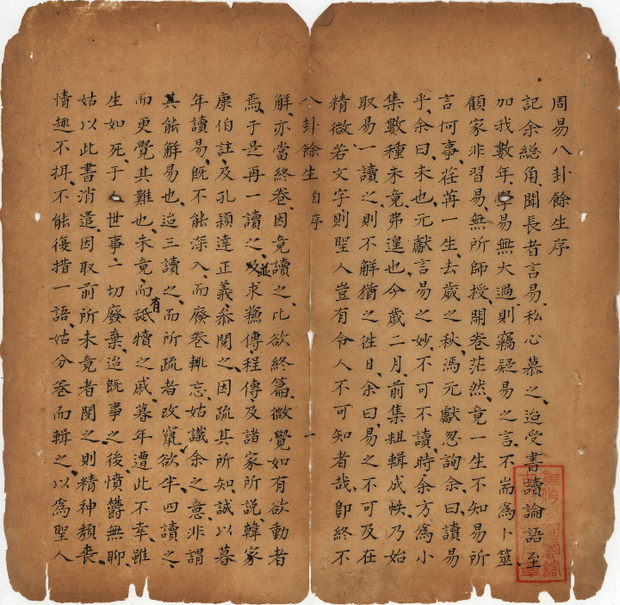 周易八卦餘生序
記余總角聞長者言易私心慕之迨受書讀論語至
加我數年學易無大過則竊疑易之言不耑為卜筮
顧家非習易無所師授開卷茫然竟一生不知易所
言何事荏苒一生去歲之秋馮元獻忽詢余曰讀易
乎余曰未也元獻言易之妙不可不讀時余方為小
集數種未竟弗遑也今歲二月前集粗輯成帙乃始
取易一讀之則不解猶之徃日余曰易之不可及在
精微若文字則聖人豈有令人不可知者哉即終不
八卦餘生 自序 一
解亦當終卷因竟讀之比欲終篇微覺如有欲動者
焉于是再一讀之並及求蘓傳程傳及諸家所説韓家
康伯註及孔穎達正義叅閱之因疏其所知誠以暮
年讀易旣不能深入而廢卷輒忘姑識余之意非謂
其能解易也迨三讀之而所疏者改竄欲半四讀之
而更覺其難也未竟而有舐犢之戚暮年遭此不幸雖
生如死于世事一切發棄迨旣事之後憤欝無聊
姑以此書消遣因取前所未竟者閱之則精神頺喪
情趣不揖不能復措一語姑分卷而輯之以為聖人